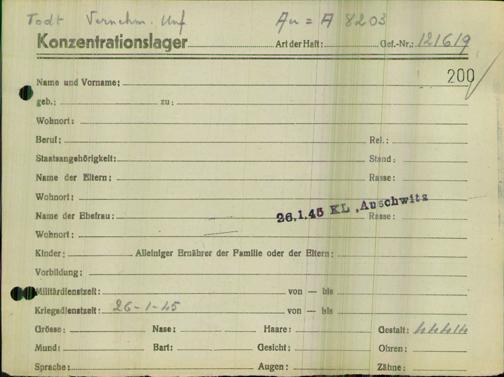 Todt Vernehm. Unf Au = A 8203
Konzentrationslager Art der Haft: Gef.-Nr.: 121619
200
Name und Vorname:
geb.: zu:
Wohnort:
Beruf: Rel.:
Staatsangehörigkeit: Stand:
Name der Eltern: Rasse:
Wohnort:
26.1.45 KL. Auschwitz
Name der Ehefrau: Rasse:
Wohnort:
Kinder: Alleiniger Ernährer der Familie oder der Eltern:
Vorbildung:
Militärdienstzeit: von — bis
Kriegsdienstzeit: 26-1-45 von — bis
Grösse: Nase: Haare: Gestalt:
Mund: Bart: Gesicht: Ohren:
Sprache: Augen: Zähne: